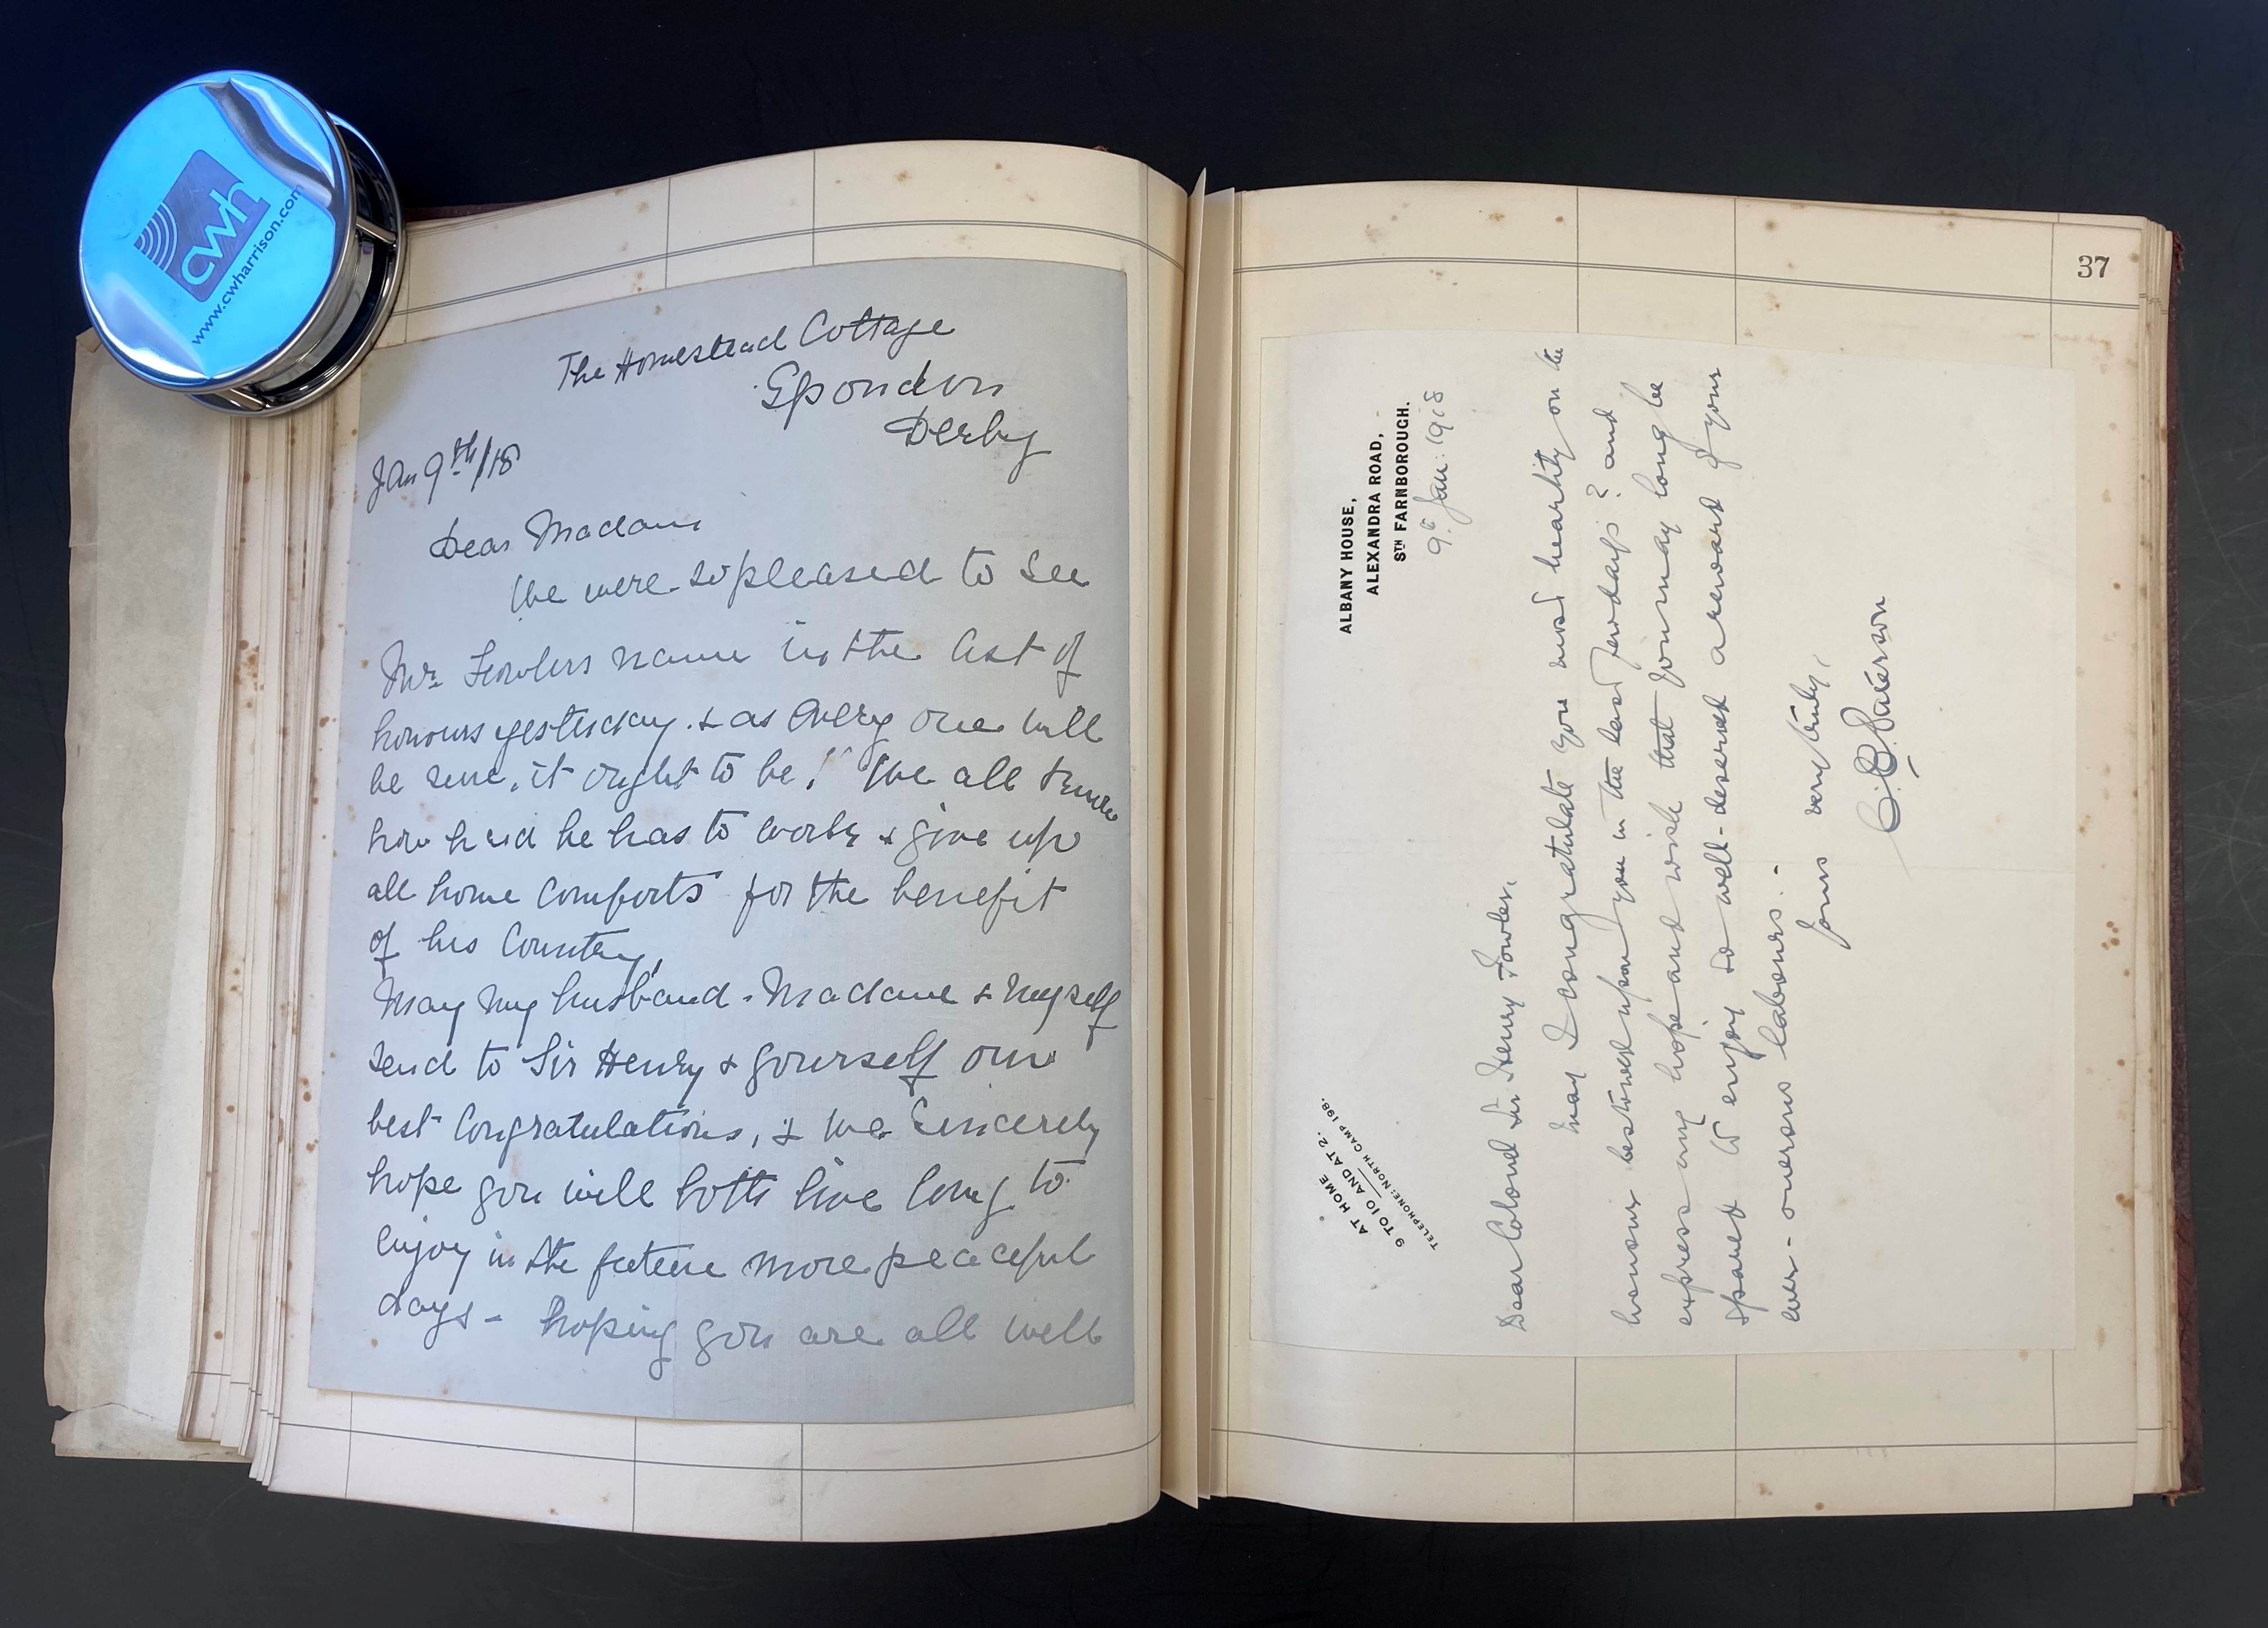 cwh
www.cwharrison.com
The Homestead Cottage
Spondon
Derby
Jan 9th/18
Dear Madam
We were so pleased to see
Mr. Fowlers name in the list of
honours yesterday. & as every one will
be sure, it ought to be! We all know
how hard he has to work & give up
all home comforts for the benefit
of his Country,
May my husband. Madame & myself
send to Sir Henry & yourself our
best Congratulations, & we Sincerely
hope you will both live long to
enjoy in the future more peaceful
days - hoping you are all well
37
ALBANY HOUSE,
ALEXANDRA ROAD,
STH FARNBOROUGH.
9th Jan: 1918
AT HOME
9 TO 10 AND AT 2.
TELEPHONE: NORTH CAMP 198.
Dear Colonel Sir Henry Fowler,
May I congratulate you most heartily on the
honour bestowed upon you in the last few days? and
express my hope and wish that you may long be
spared to enjoy so well-deserved a reward of your
ever-onerous labours. -
Yours very truly,